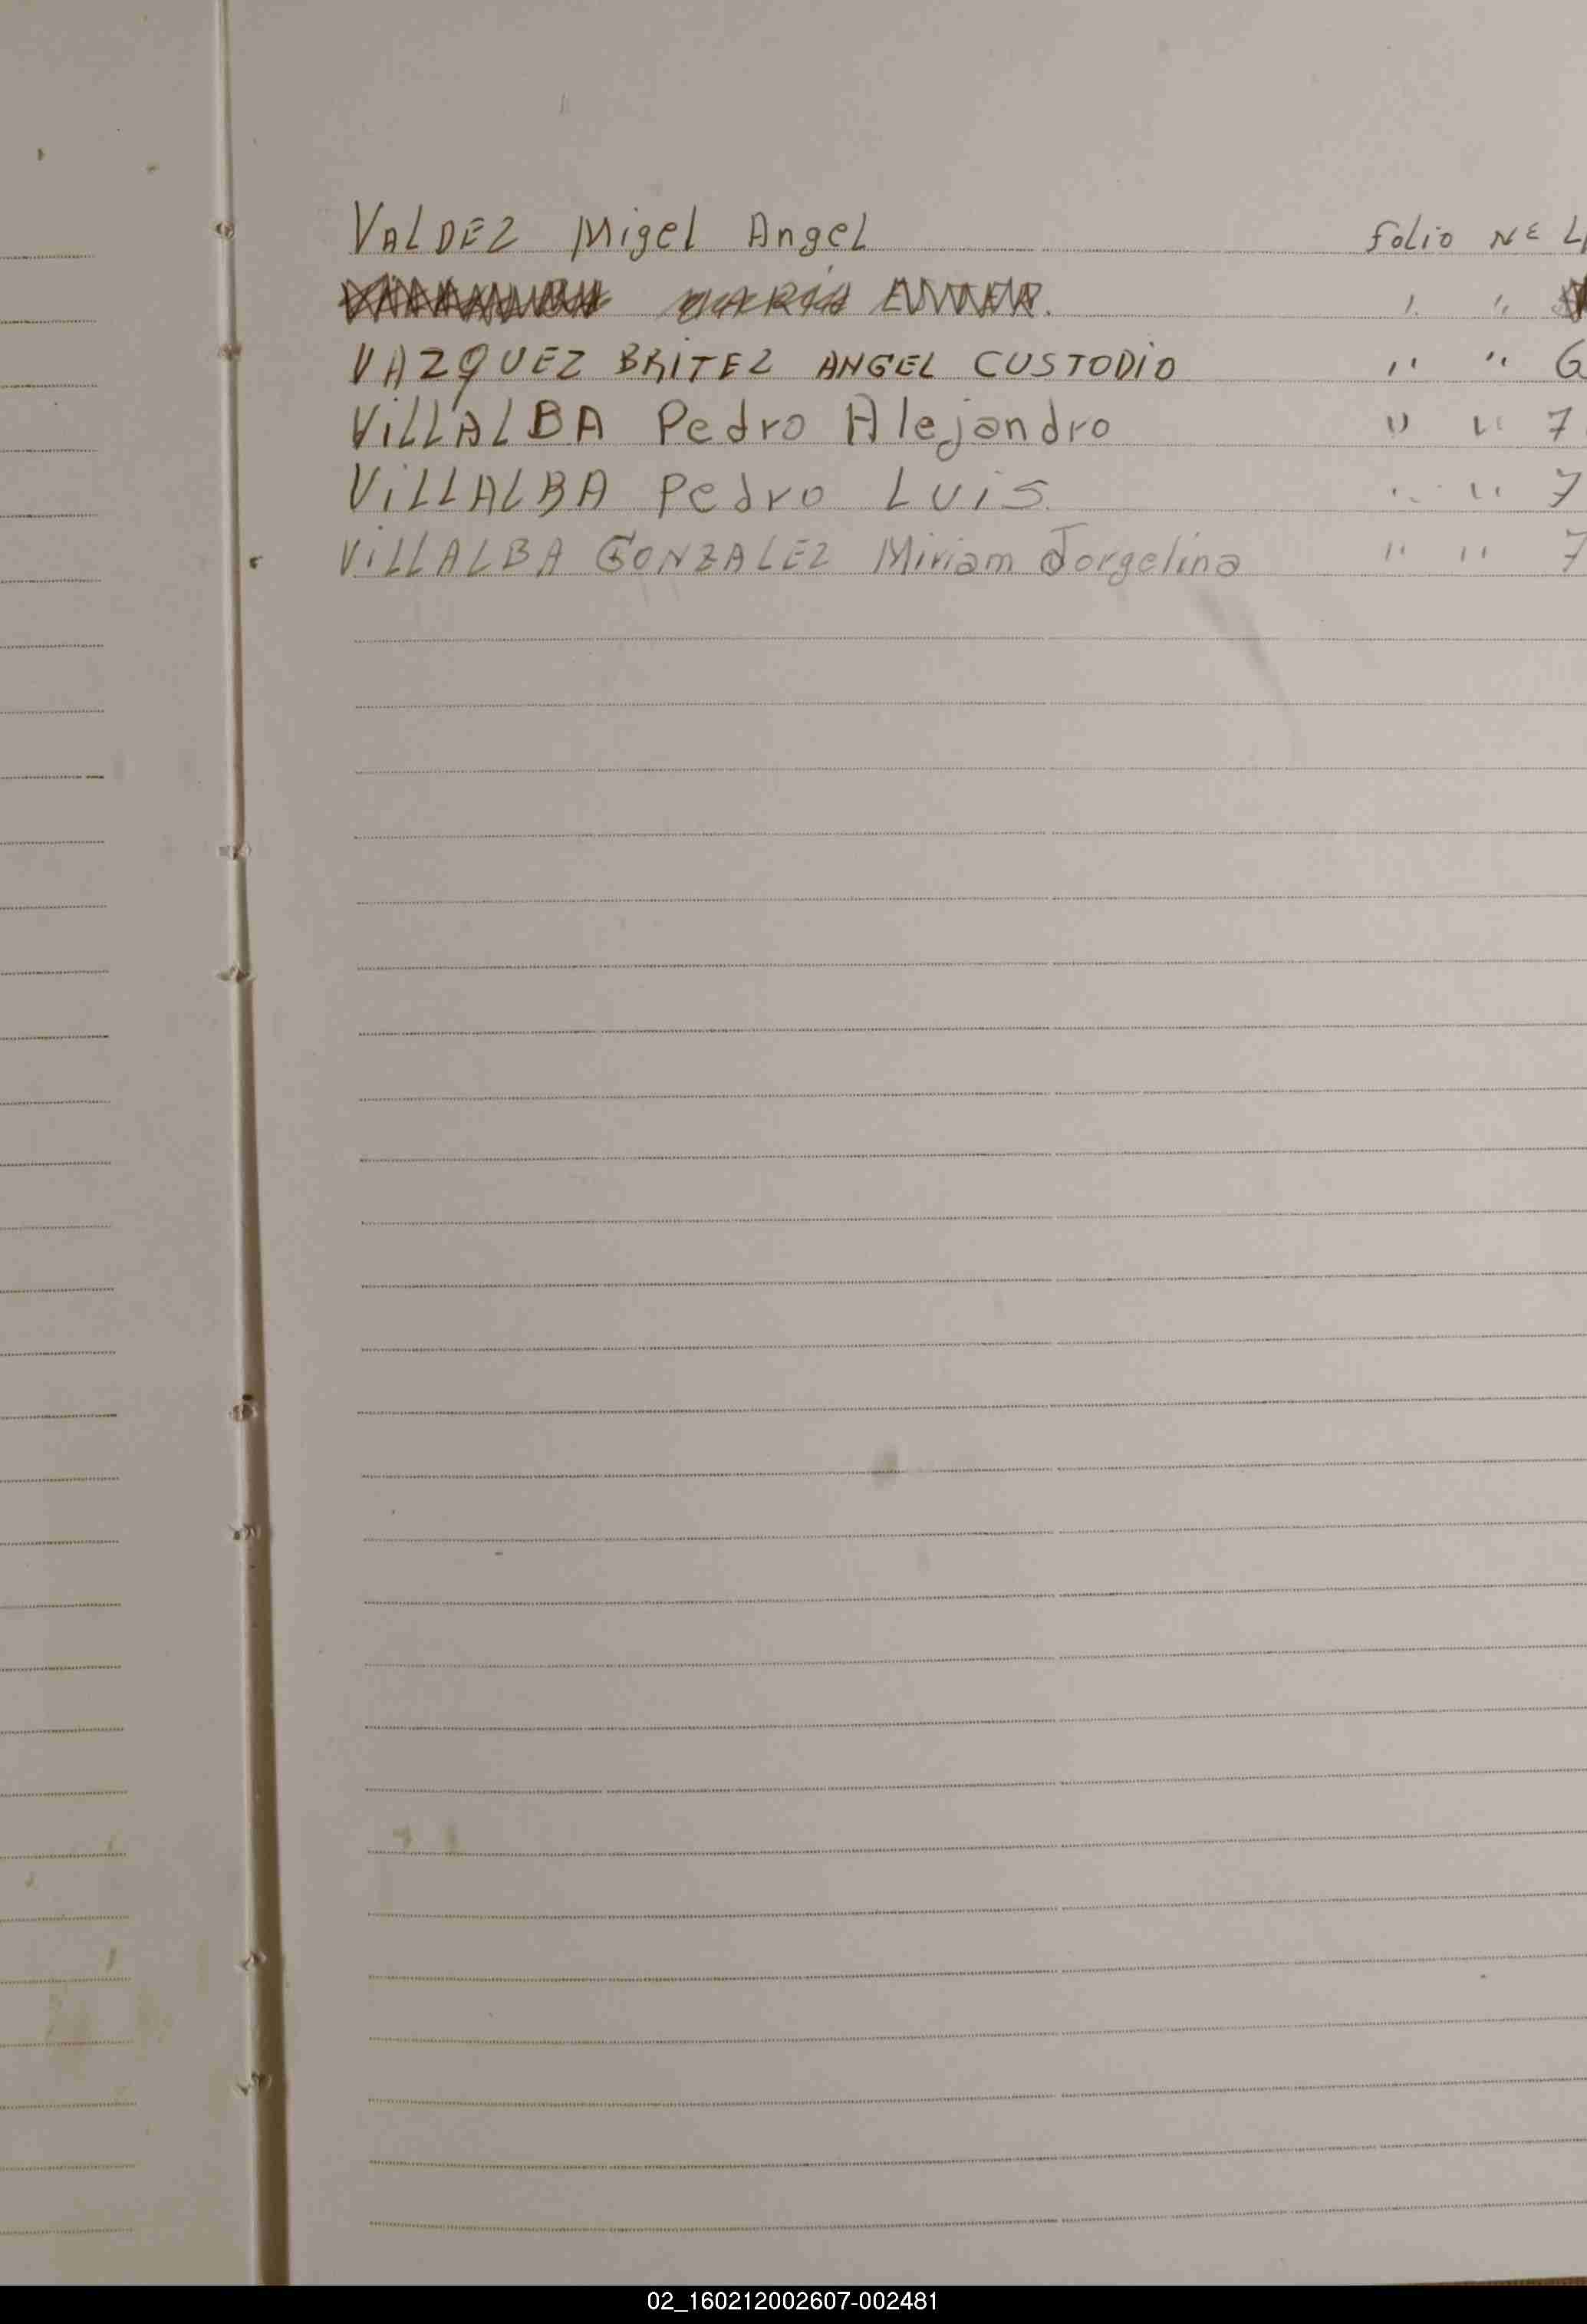 VALDEZ Migel Angel folio Nº
MARIA
VAZQUEZ BRITEZ ANGEL CUSTODIO " " 6
VILLALBA Pedro Alejandro " " 7
VILLALBA Pedro Luis. " " 7
VILLALBA GONZALEZ Miriam Jorgelina " " 7
02_160212002607-002481